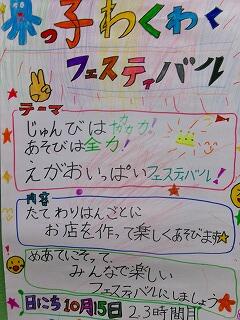 っ子わくわく
フェスティバル
テーマ
じゅんびは
あそびは全力!
えがおいっぱいフェスティバル!
内容
たてわりはんごとに
お店を作って楽しくあそびます
めあてにそって、
みんなで楽しい
フェスティバルにしましょう
日にち10月15日 2.3時間目